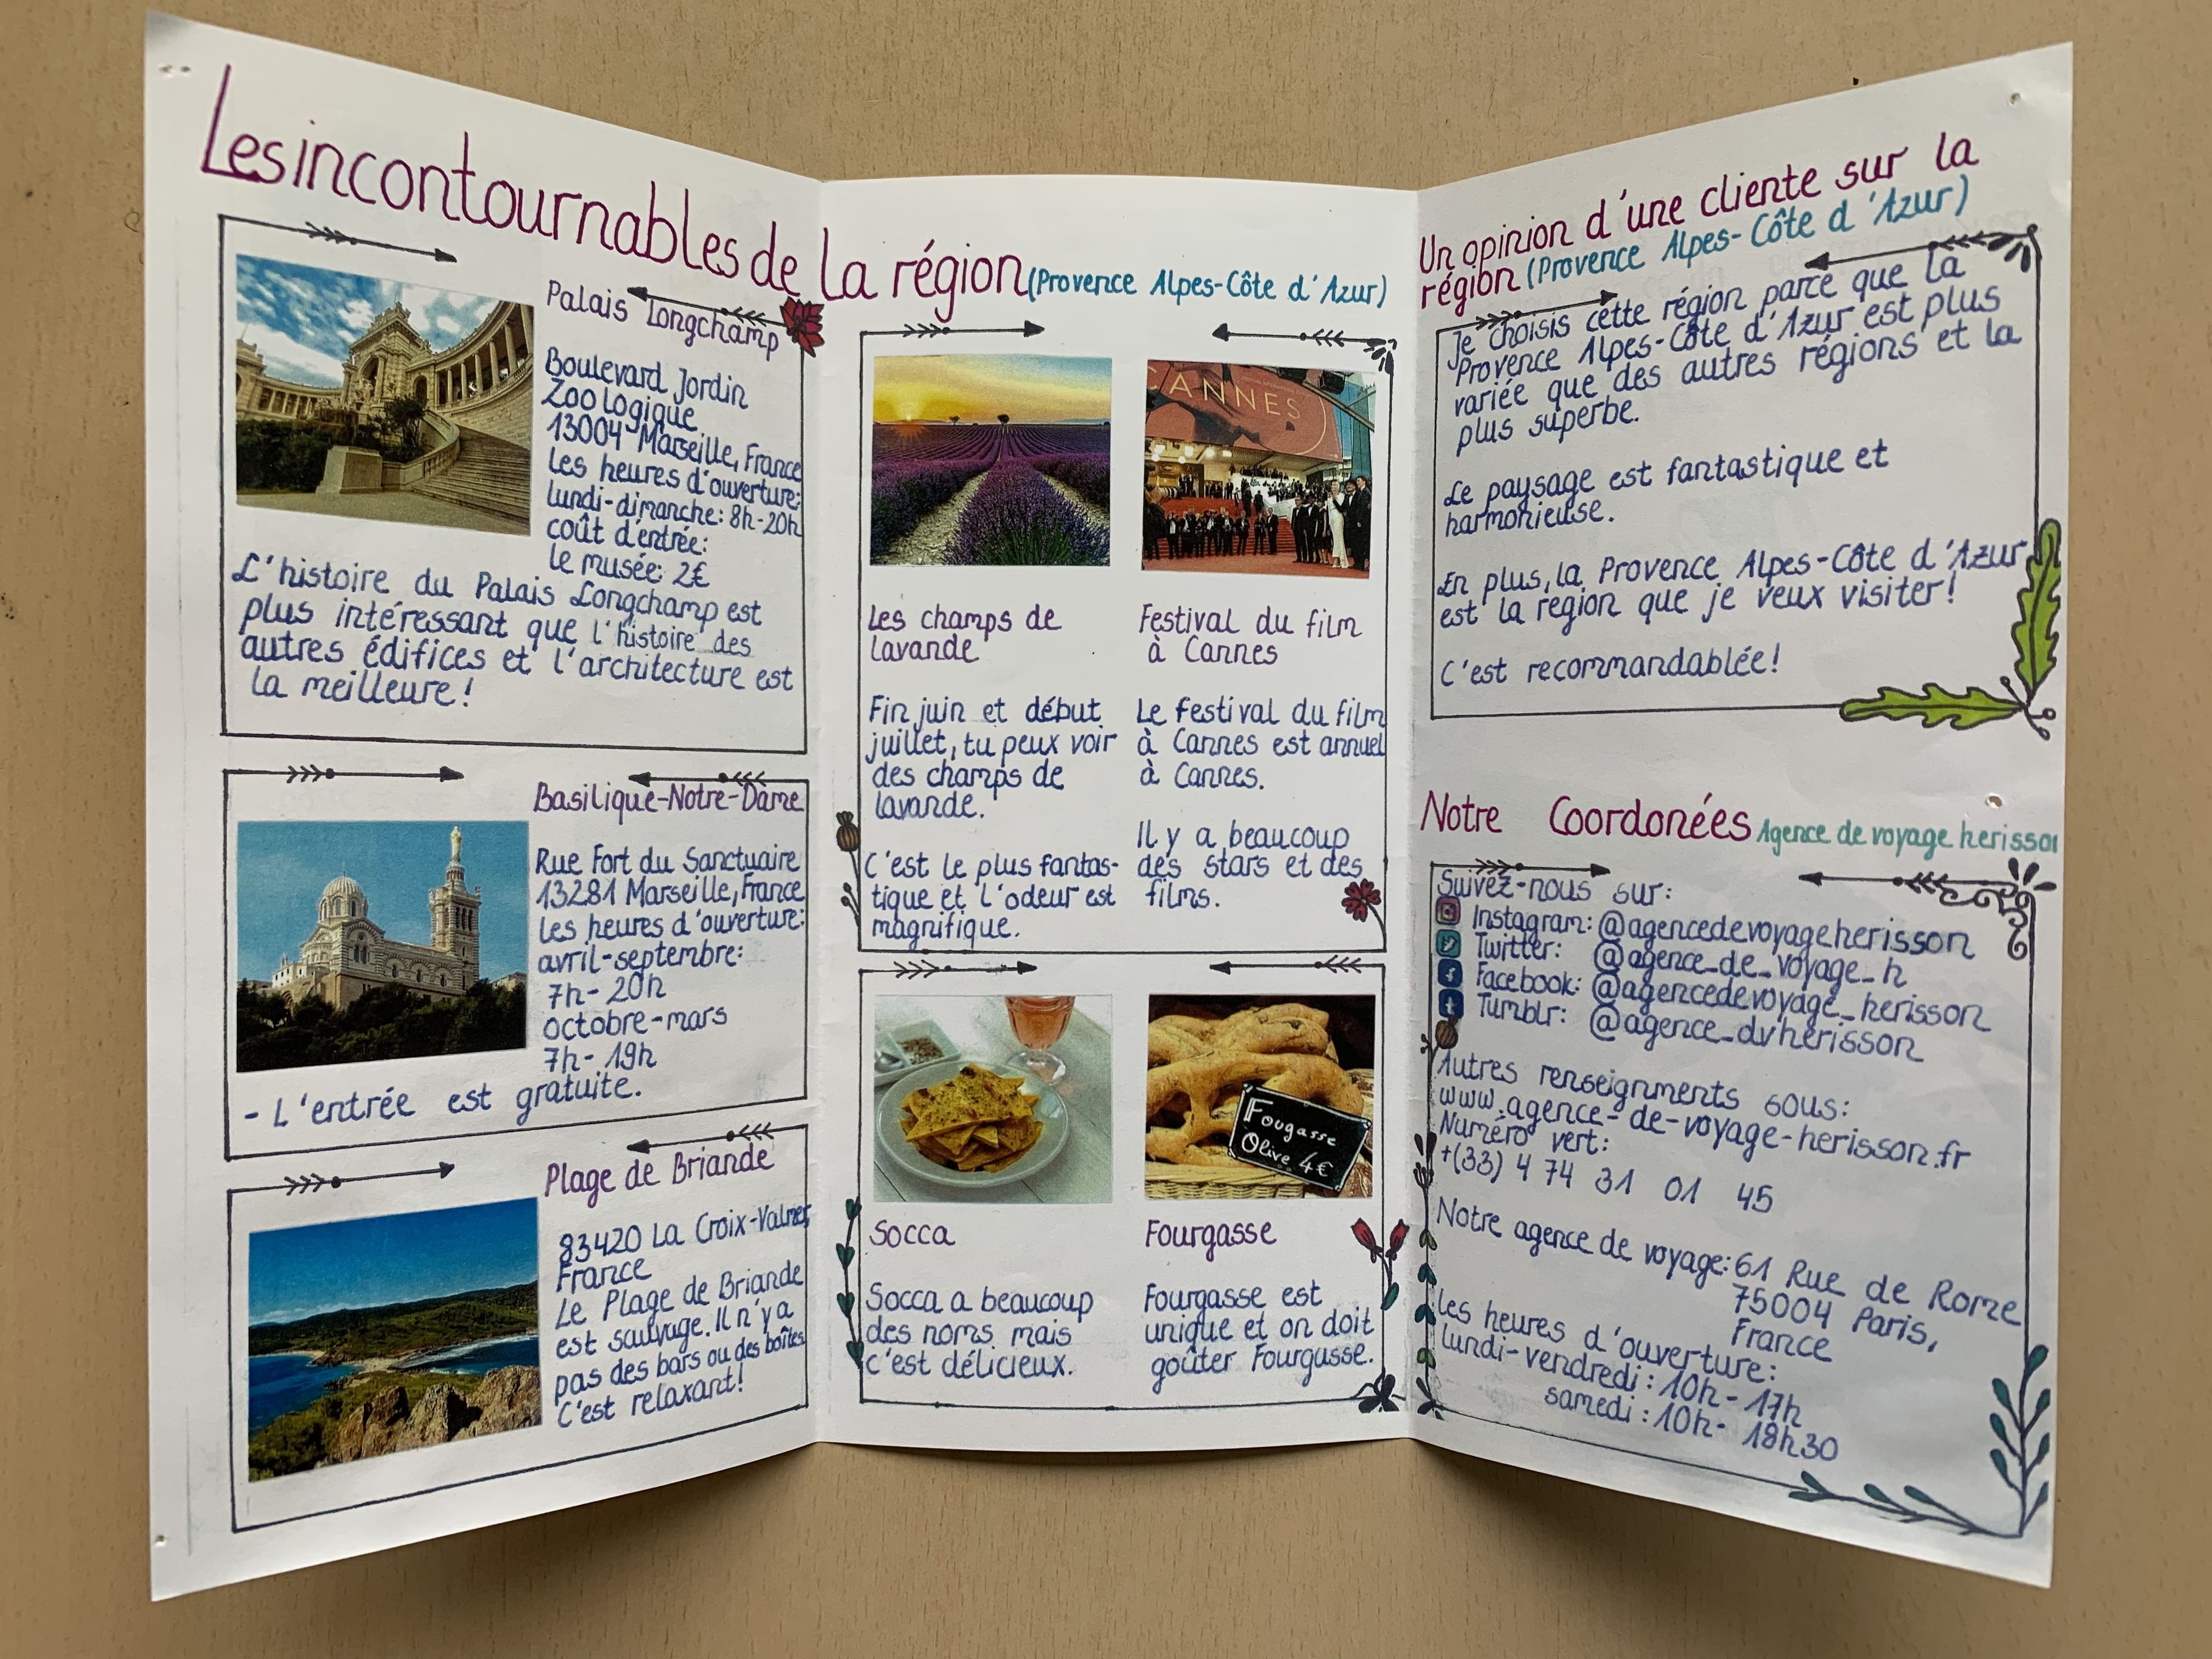 Les incontournables de la région (Provence Alpes-Côte d'Azur)
Palais Longchamp
Boulevard Jordin
Zoologique
13004 Marseille, France
Les heures d'ouverture:
lundi-dimanche: 8h-20h
coût d'entrée:
le musée: 2€
L'histoire du Palais Longchamp est
plus intéressant que l'histoire des
autres édifices et l'architecture est
la meilleure!
Basilique-Notre-Dame
Rue Fort du Sanctuaire
13281 Marseille, France
Les heures d'ouverture:
avril-septembre:
7h-20h
octobre-mars
7h-19h
- L'entrée est gratuite.
Plage de Briande
83420 La Croix-Valmer,
France
Le Plage de Briande
est sauvage. Il n'y a
pas des bars ou des boîtes.
C'est relaxant!
CANNES
Les champs de
lavande
Fin juin et début
juillet, tu peux voir
des champs de
lavande.
C'est le plus fantas-
tique et l'odeur est
magnifique.
Festival du film
à Cannes
Le festival du film
à Cannes est annuel
à Cannes.
Il y a beaucoup
des stars et des
films.
Socca
Socca a beaucoup
des noms mais
c'est délicieux.
Fougasse
Olive 4€
Fourgasse
Fourgasse est
unique et on doit
goûter Fourgasse.
Un opinion d'une cliente sur la
région (Provence Alpes-Côte d'Azur)
Je choisis cette région parce que la
Provence Alpes-Côte d'Azur est plus
variée que des autres régions et la
plus superbe.
Le paysage est fantastique et
harmonieuse.
En plus, la Provence Alpes-Côte d'Azur
est la région que je veux visiter!
C'est recommandablée!
Notre Coordonées Agence de voyage herisson
Suivez-nous sur:
Instagram: @agencedevoyageherisson
Twitter: @agence_de_voyage_h
Facebook: @agencedevoyage_herisson
Tumblr: @agence_dvherisson
Autres renseignments sous:
www.agence-de-voyage-herisson.fr
Numéro vert:
+(33) 4 74 31 01 45
Notre agence de voyage: 61 Rue de Rome
75004 Paris,
France
Les heures d'ouverture:
lundi-vendredi: 10h-17h
samedi: 10h-18h30